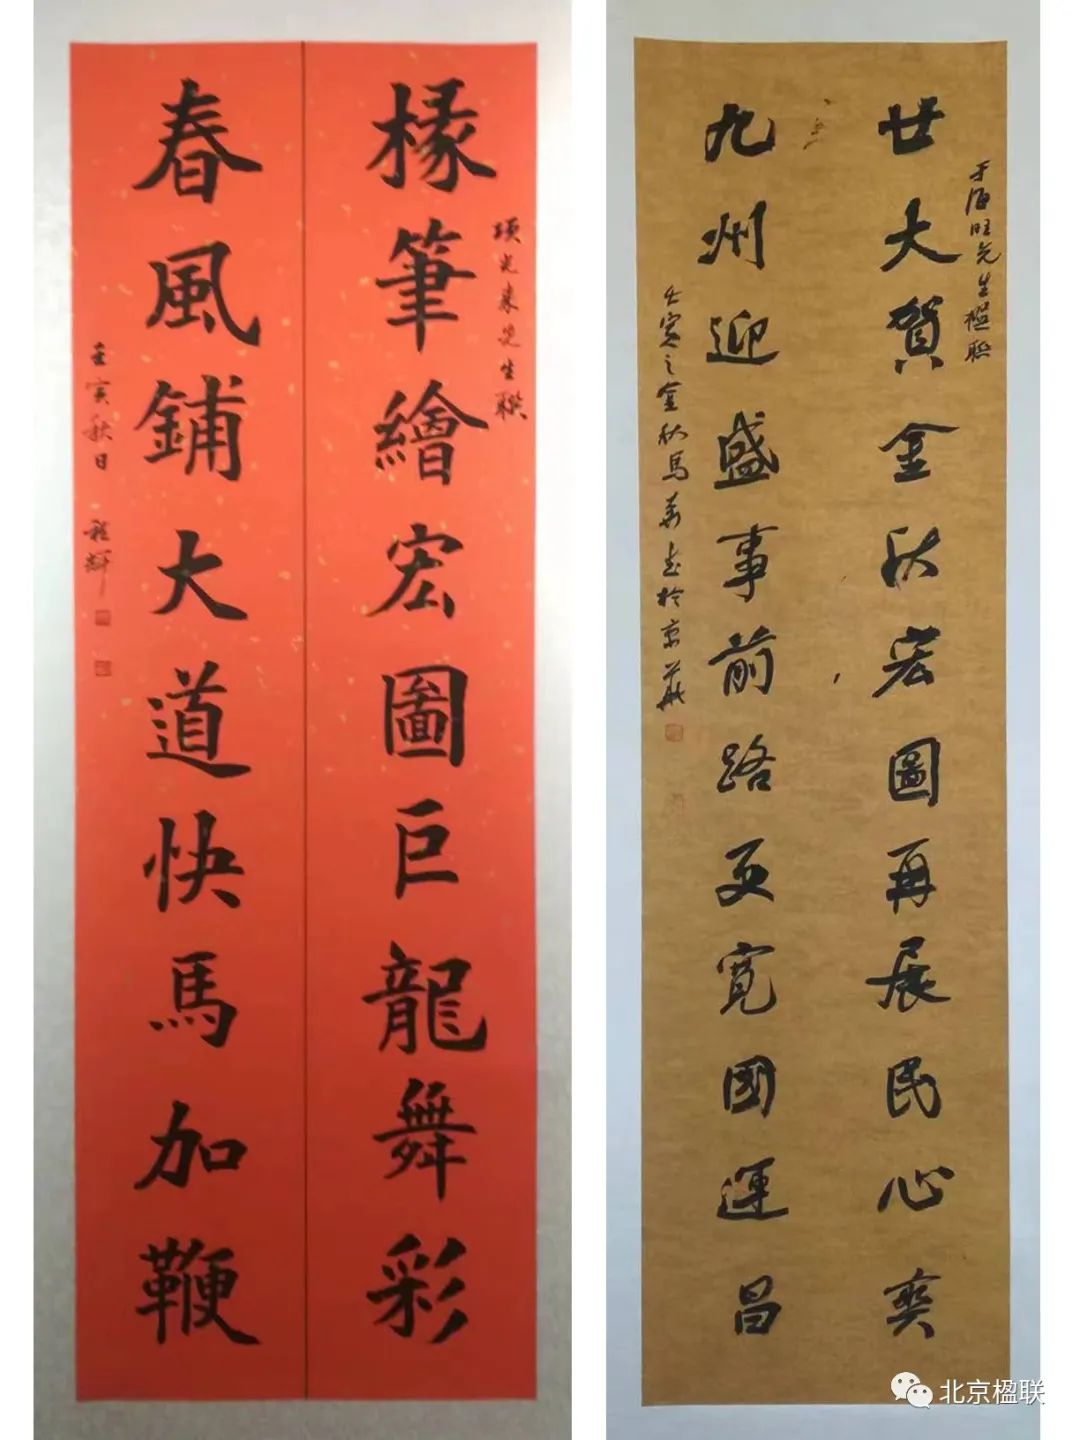 椽筆繪宏圖巨龍舞彩
項光來先生聯
春風鋪大道快馬加鞭
壬寅秋日 程輝
廿大賀金秋宏圖再展民心奕
于海旺先生楹联
九州迎盛事前路更寬國運昌
壬寅之金秋馬
於京華
北京楹联